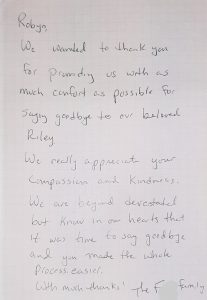 Robyn,
We wanted to thank you
for providing us with as
much comfort as possible for
saying goodbye to our beloved
Riley
We really appreciate your
Compassion and kindness.
We are beyond devastated
but know in our hearts that
it was time to say goodbye
and you made the whole
process easier.
With much thanks! The F family